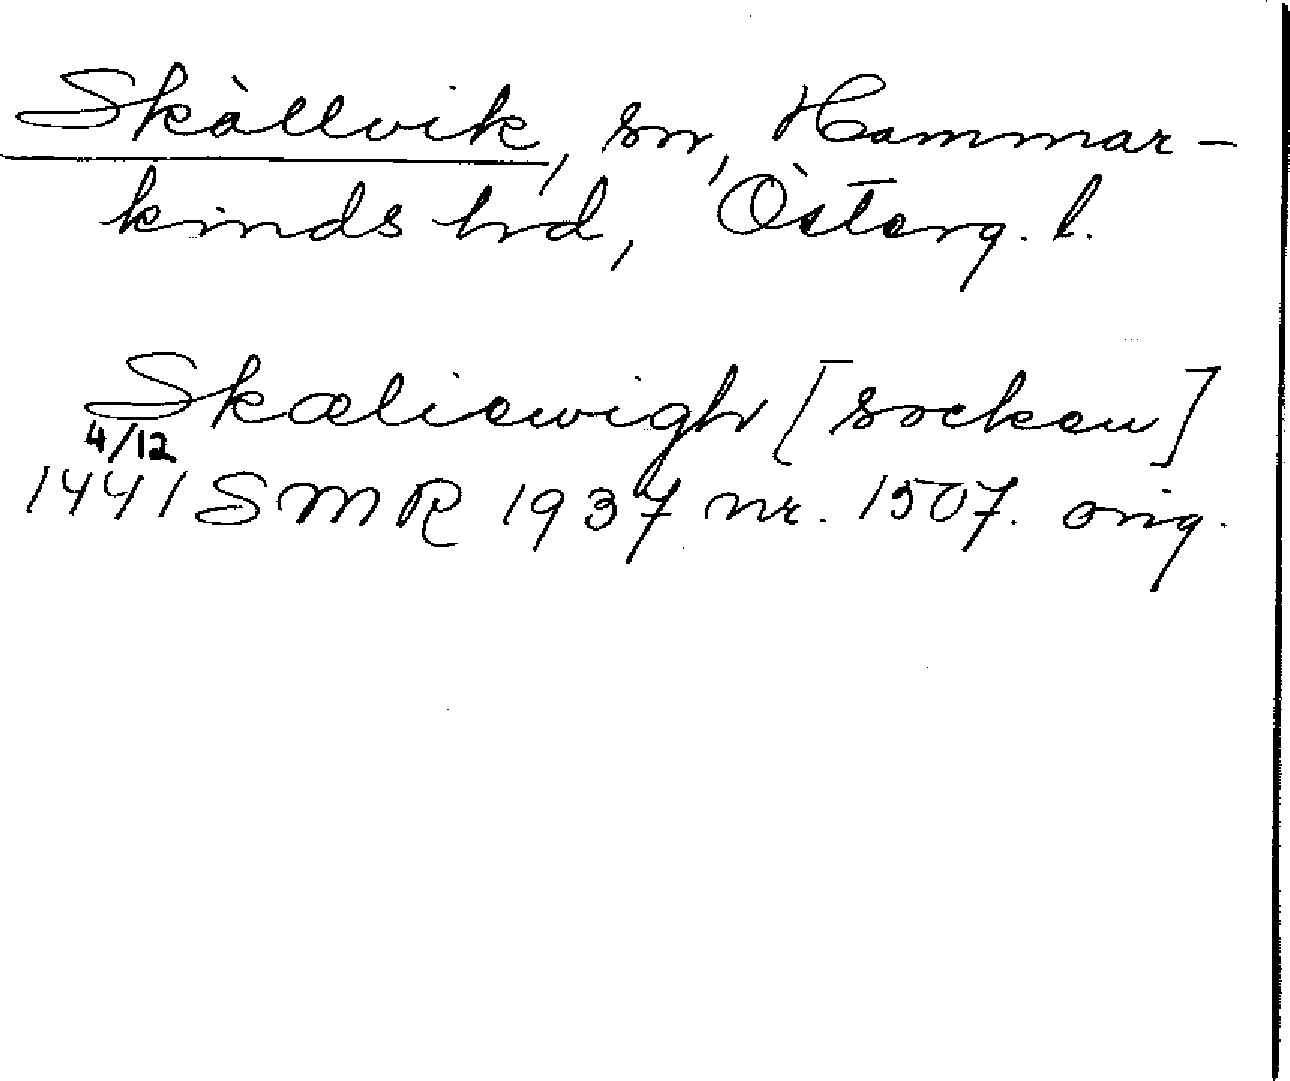 Skällvik, sn, Hammar-
kinds hd, Österg. l.
Skæliewigh [socken]
4/12
1441 SMR 1937 nr. 1507. orig.